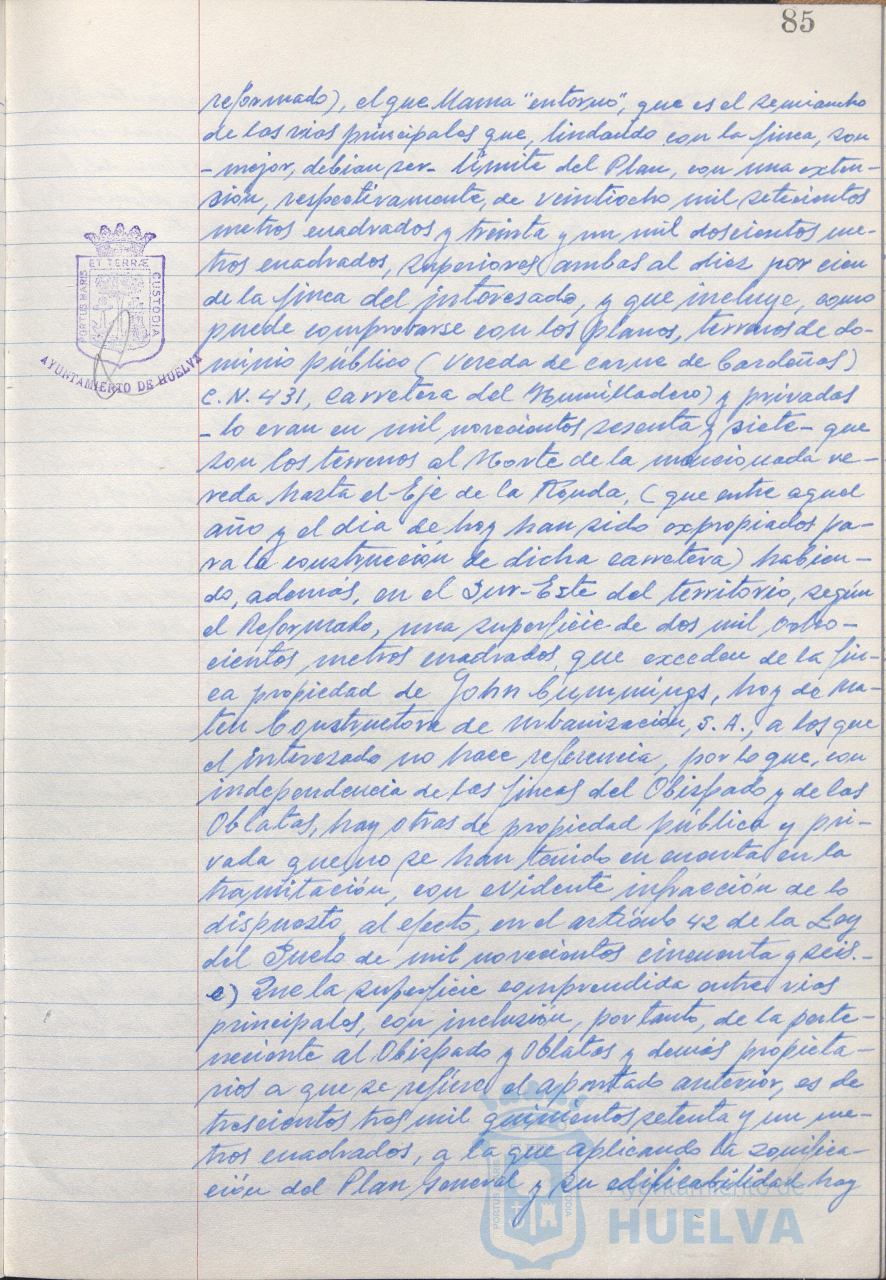 85
reformado), el que llama "entorno", que es el semiancho
de las vias principales que, lindando con la finca, son
- mejor, debian ser - límite del Plan, con una exten-
sión, respectivamente, de veintiocho mil setecientos
metros cuadrados y treinta y un mil doscientos me-
tros cuadrados, superiores ambas al diez por cien
de la finca del interesado, y que incluye, como
puede comprobarse con los planos, terrenos de do-
minio público (Vereda de carne de Cardeñas)
C.N. 431, Carretera del Humilladero) y privados
- lo eran en mil novecientos sesenta y siete - que
son los terrenos al Norte de la mencionada ve-
reda hasta el Eje de la Ronda, (que entre aquel
año y el dia de hoy han sido expropiados pa-
ra la construcción de dicha carretera) habien-
do, además, en el Sur-Este del territorio, según
el Reformado, una superficie de dos mil ocho-
cientos metros cuadrados que exceden de la fin-
ca propiedad de John Cummings, hoy de Ma-
ten Constructora de Urbanización, S.A., a los que
el interesado no hace referencia, por lo que, con
independencia de las fincas del Obispado y de las
Oblatas, hay otras de propiedad pública y pri-
vada que no se han tenido en cuenta en la
tramitación, con evidente infracción de lo
dispuesto, al efecto, en el artículo 42 de la Ley
del Suelo de mil novecientos cincuenta y seis.-
e) Que la superficie comprendida entre vias
principales, con inclusión, por tanto, de la perte-
neciente al Obispado y Oblatas y demás propieta-
rios a que se refiere el apartado anterior, es de
trescientos tres mil quinientos setenta y un me-
tros cuadrados, a la que aplicando la zonifica-
ción del Plan General y su edificabilidad hoy
PORTUS MARIS ET TERRÆ CUSTODIA
AYUNTAMIENTO DE HUELVA
PORTUS MARIS
CUSTODIA
Ayuntamiento de
HUELVA